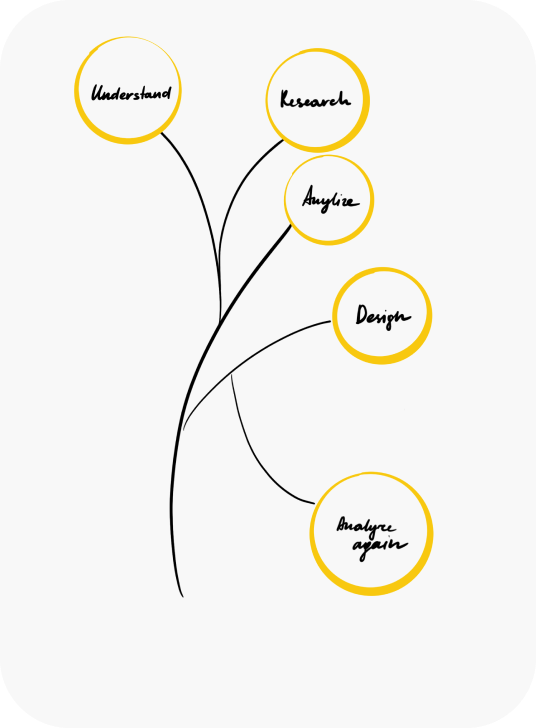 Understand
Research
Anylize
Design
Analyze
again